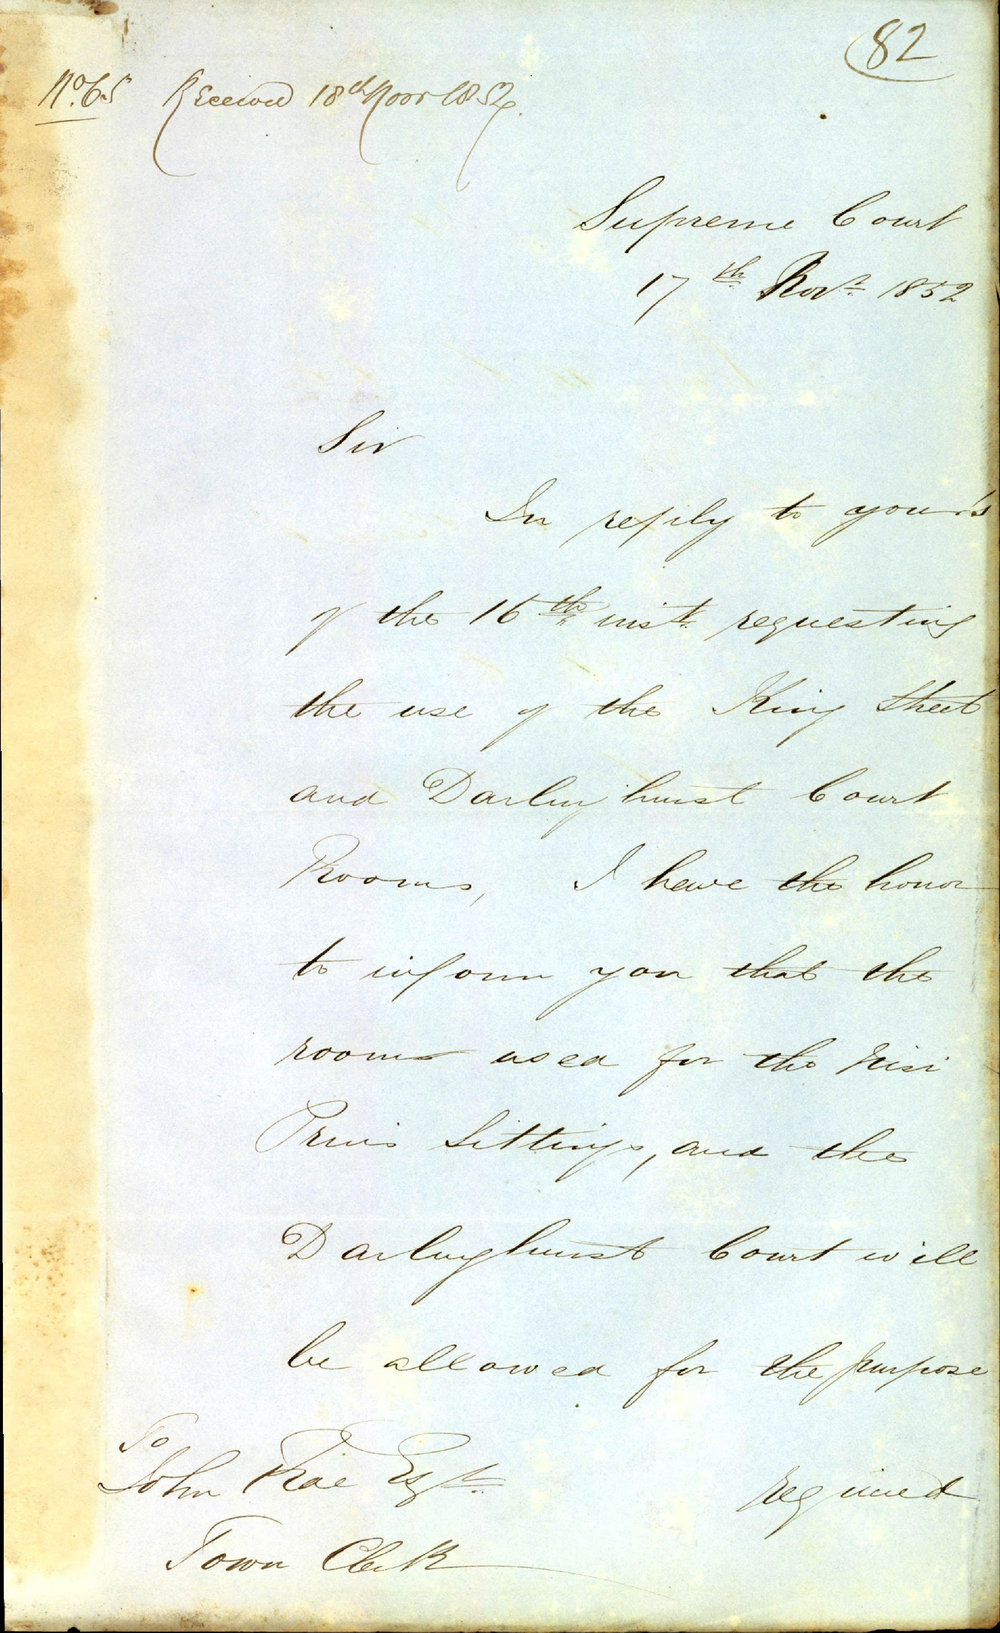 82
No. 65 Received 18th Novr 1852.
Supreme Court
17th Novr. 1852
Sir
In reply to your's
of the 16th inst. requesting
the use of the King Street
and Darlinghurst Court
Rooms, I have the honor
to inform you that the
rooms used for the Nisi
Prius Sittings, and the
Darlinghurst Court will
be allowed for the purpose
required
To
John Rae Esqr.
Town Clerk